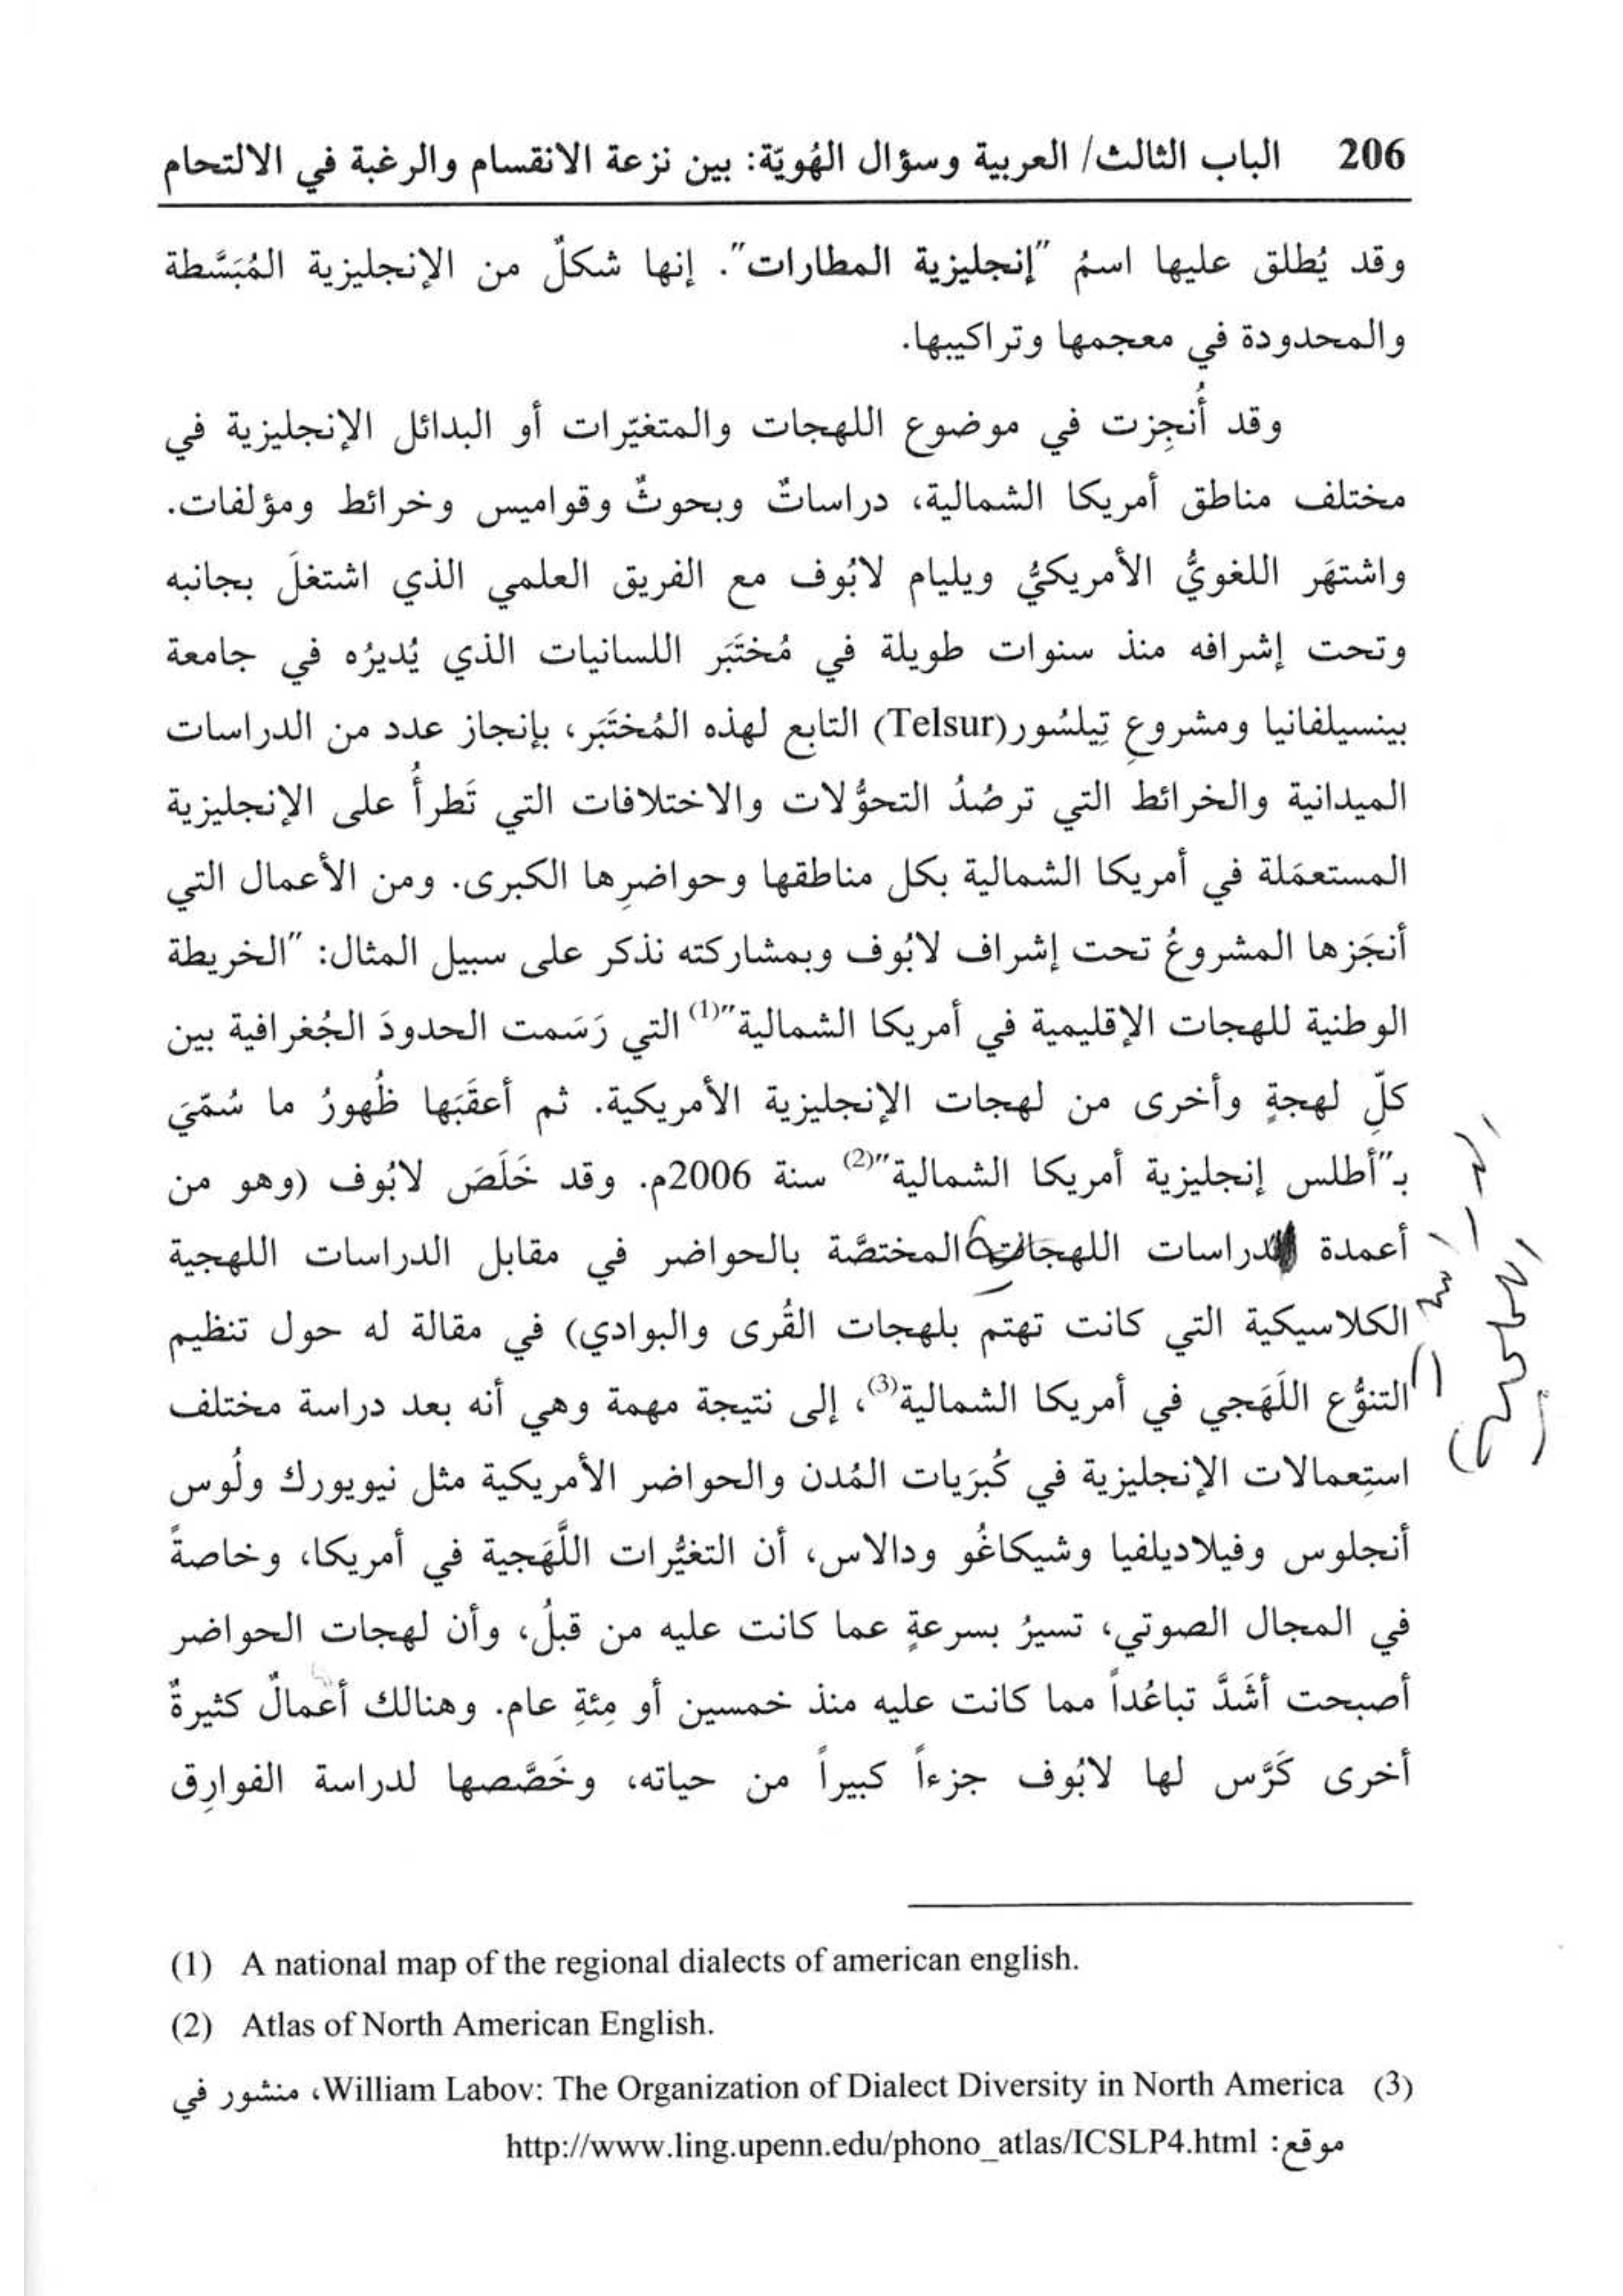 206 الباب الثالث/ العربية وسؤال الهُويّة: بين نزعة الانقسام والرغبة في الالتحام
وقد يُطلق عليها اسمُ "إنجليزية المطارات". إنها شكلٌ من الإنجليزية المُبَسَّطة
والمحدودة في معجمها وتراكيبها.
وقد أُنجِزت في موضوع اللهجات والمتغيّرات أو البدائل الإنجليزية في
مختلف مناطق أمريكا الشمالية، دراساتٌ وبحوثٌ وقواميس وخرائط ومؤلفات.
واشتهَر اللغويُّ الأمريكيُّ ويليام لابُوف مع الفريق العلمي الذي اشتغلَ بجانبه
وتحت إشرافه منذ سنوات طويلة في مُختَبَر اللسانيات الذي يُديرُه في جامعة
بينسيلفانيا ومشروعِ تِيلسُور(Telsur) التابع لهذه المُختَبَر، بإنجاز عدد من الدراسات
الميدانية والخرائط التي ترصُدُ التحوُّلات والاختلافات التي تَطرأُ على الإنجليزية
المستعمَلة في أمريكا الشمالية بكل مناطقها وحواضرِها الكبرى. ومن الأعمال التي
أنجَزها المشروعُ تحت إشراف لابُوف وبمشاركته نذكر على سبيل المثال: "الخريطة
الوطنية للهجات الإقليمية في أمريكا الشمالية"(1) التي رَسَمت الحدودَ الجُغرافية بين
كلِّ لهجةٍ وأخرى من لهجات الإنجليزية الأمريكية. ثم أعقَبَها ظُهورُ ما سُمّيَ
بـ"أطلس إنجليزية أمريكا الشمالية"(2) سنة 2006م. وقد خَلَصَ لابُوف (وهو من
أعمدة الدراسات اللهجات المختصَّة بالحواضر في مقابل الدراسات اللهجية
الكلاسيكية التي كانت تهتم بلهجات القُرى والبوادي) في مقالة له حول تنظيم
التنوُّع اللَهَجي في أمريكا الشمالية(3)، إلى نتيجة مهمة وهي أنه بعد دراسة مختلف
استِعمالات الإنجليزية في كُبرَيات المُدن والحواضر الأمريكية مثل نيويورك ولُوس
أنجلوس وفيلاديلفيا وشيكاغُو ودالاس، أن التغيُّرات اللَّهَجية في أمريكا، وخاصةً
في المجال الصوتي، تسيرُ بسرعةٍ عما كانت عليه من قبلُ، وأن لهجات الحواضر
أصبحت أشَدَّ تباعُداً مما كانت عليه منذ خمسين أو مِئةِ عام. وهنالك أعمالٌ كثيرةٌ
أخرى كَرَّس لها لابُوف جزءاً كبيراً من حياته، وخَصَّصها لدراسة الفوارِق
(1) A national map of the regional dialects of american english.
(2) Atlas of North American English.
(3) William Labov: The Organization of Dialect Diversity in North America، منشور في
موقع: http://www.ling.upenn.edu/phono_atlas/ICSLP4.html